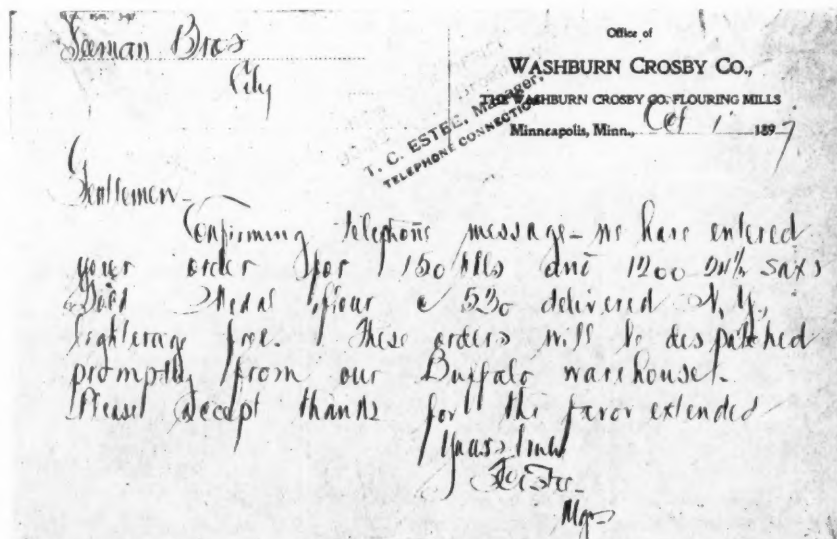 Seeman Bros
City
Office of
WASHBURN CROSBY CO.,
THE WASHBURN CROSBY CO. FLOURING MILLS
Minneapolis, Minn., Oct 1 1897
T. C. ESTEE, Manager,
TELEPHONE CONNECTION
Gentlemen-
Confirming telephone message - we have entered
your order for 150 bbls and 1200 24½ saxs
Gold Medal flour @ 530 delivered N.Y.,
lighterage free. These orders will be despatched
promptly from our Buffalo warehouse.
Please accept thanks for the favor extended
Yours truly
Mgr